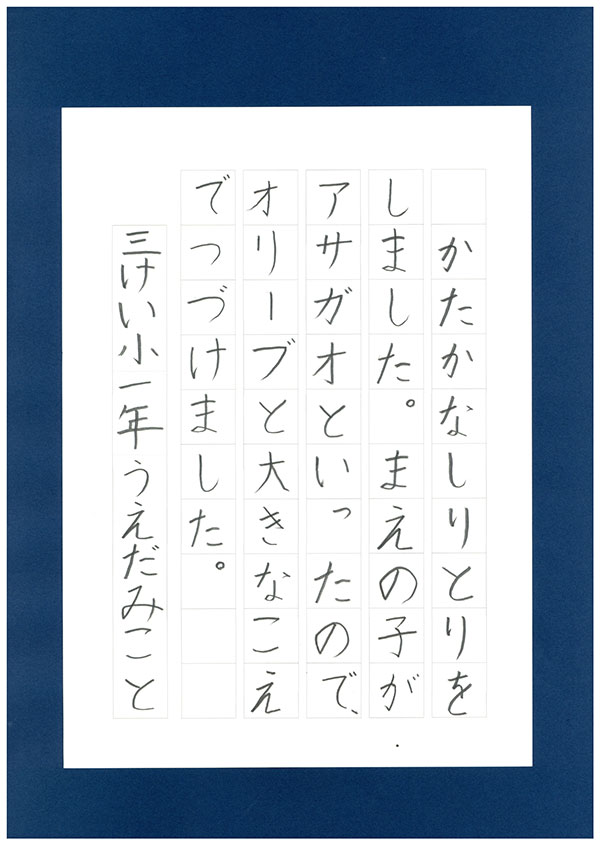 かたかなしりとりを
しました。まえの子が
アサガオといったので、
オリーブと大きなこえ
でつづけました。
三けい小一年うえだみこと